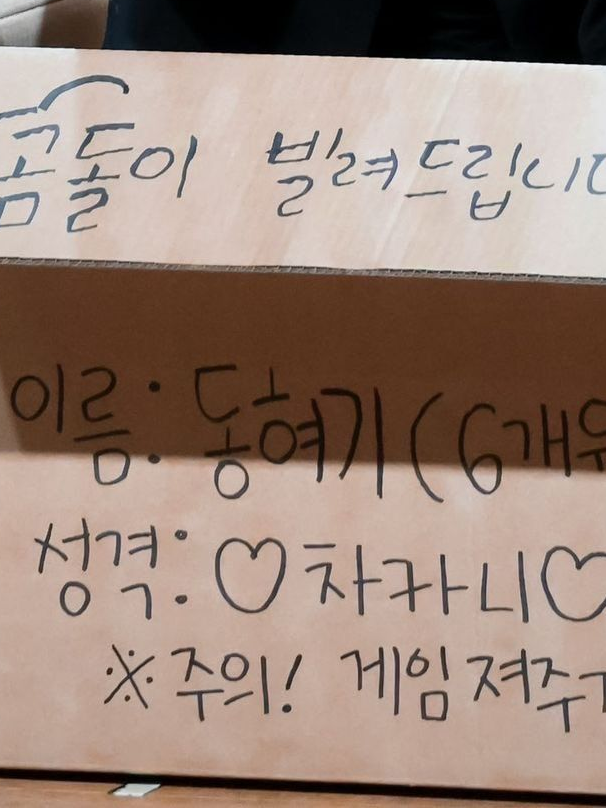 곰돌이 빌려드립니다
이름: 동여기 (6개월
성격: ♡차카니♡
※주의! 게임 져주